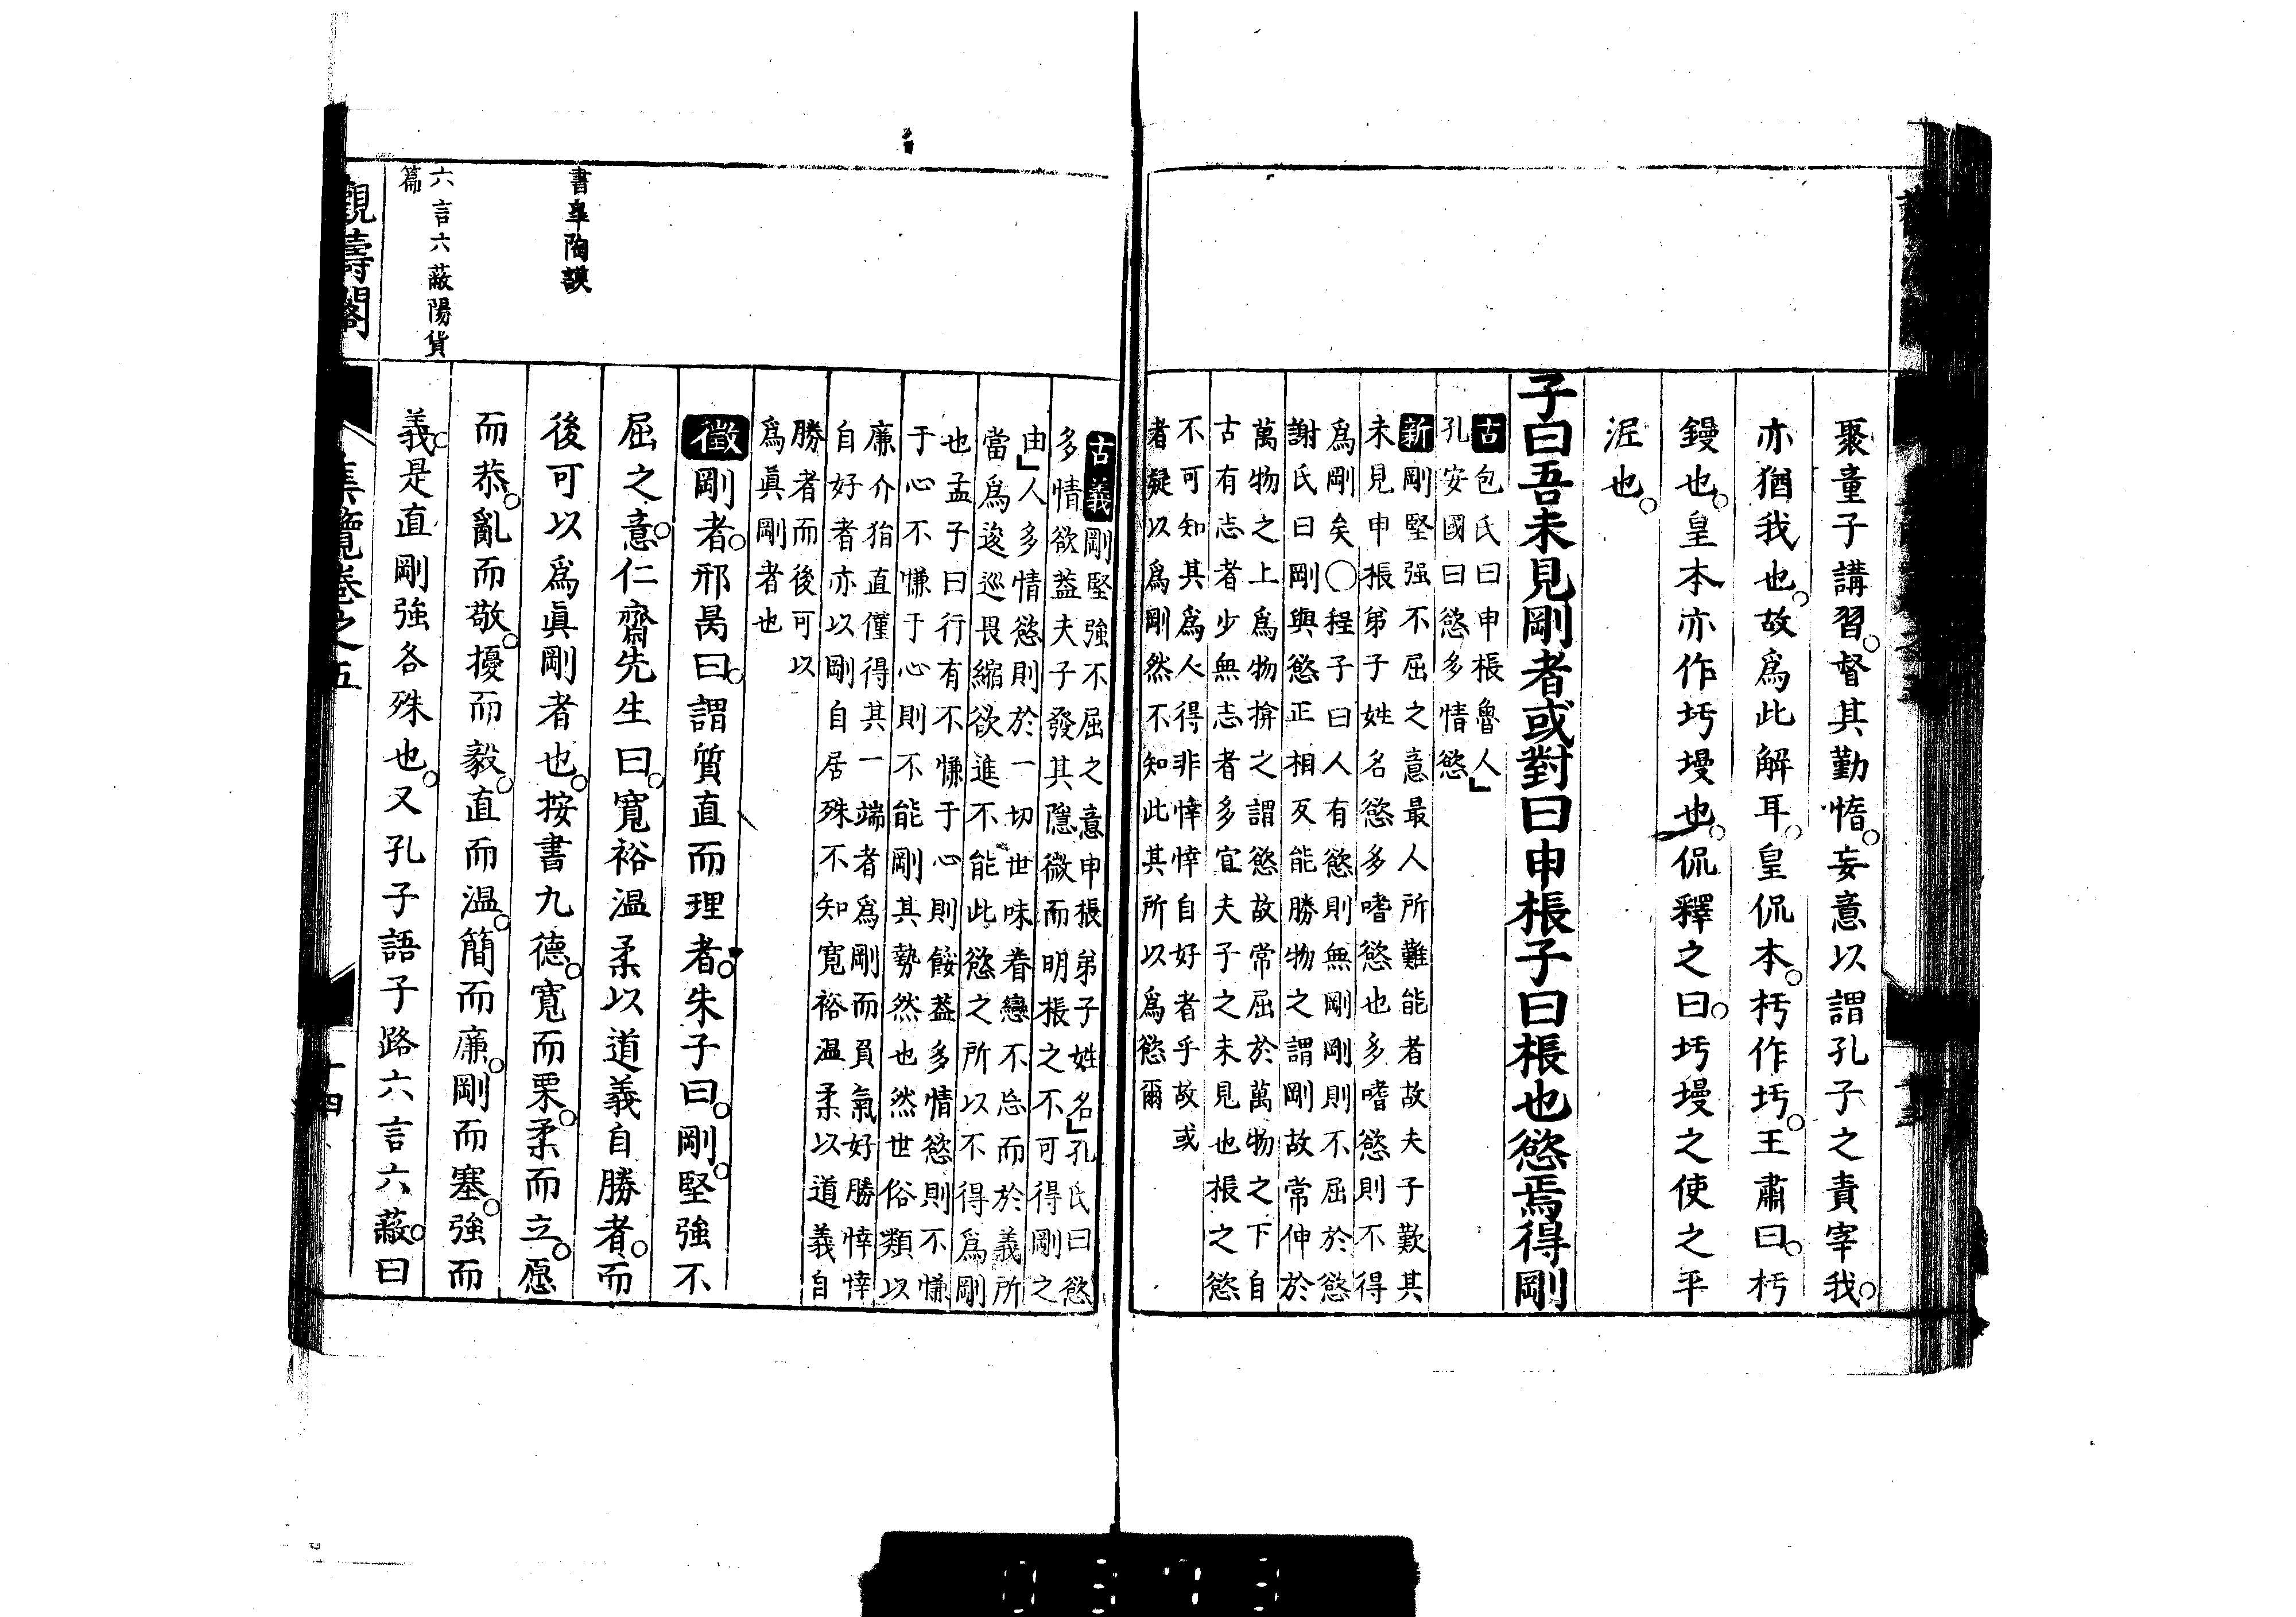 聚童子講習。督其勤惰。妄意以謂孔子之責宰我。
亦猶我也。故爲此解耳。皇侃本。杇作圬。王肅曰。杇
鏝也。皇本亦作圬墁也。侃釋之曰。圬墁之使之平
泥也。
子曰吾未見剛者或對曰申棖子曰棖也慾焉得剛
古包氏曰申棖魯人」
孔安國曰慾多情慾
新剛堅强不屈之意最人所難能者故夫子歎其
未見申棖弟子姓名慾多嗜慾也多嗜慾則不得
爲剛矣○程子曰人有慾則無剛剛則不屈於慾
謝氏曰剛與慾正相反能勝物之謂剛故常伸於
萬物之上爲物揜之謂慾故常屈於萬物之下自
古有志者少無志者多宜夫子之未見也棖之慾
不可知其爲人得非悻悻自好者乎故或
者疑以爲剛然不知此其所以爲慾爾
古義剛堅強不屈之意申棖弟子姓名」孔氏曰慾
多情欲葢夫子發其隱微而明棖之不可得剛之
由」人多情慾則於一切世味眷戀不忘而於義所
當爲逡巡畏縮欲進不能此慾之所以不得爲剛
也孟子曰行有不慊于心則餒葢多情慾則不慊
于心不慊于心則不能剛其勢然也然世俗類以
廉介狷直僅得其一端者爲剛而負氣好勝悻悻
自好者亦以剛自居殊不知寬裕温柔以道義自
勝者而後可以
爲眞剛者也
徵剛者。邢昺曰。謂質直而理者。朱子曰。剛。堅強不
屈之意。仁齋先生曰。寬裕温柔以道義自勝者。而
後可以爲眞剛者也。按書九德。寬而栗。柔而立。愿
而恭。亂而敬。擾而毅。直而温。簡而廉。剛而塞。強而
義。是直剛強各殊也。又孔子語子路六言六蔽。曰
書皐陶謨
六言六蔽陽貨
篇
觀濤閣
集覽卷之五
十四
0373